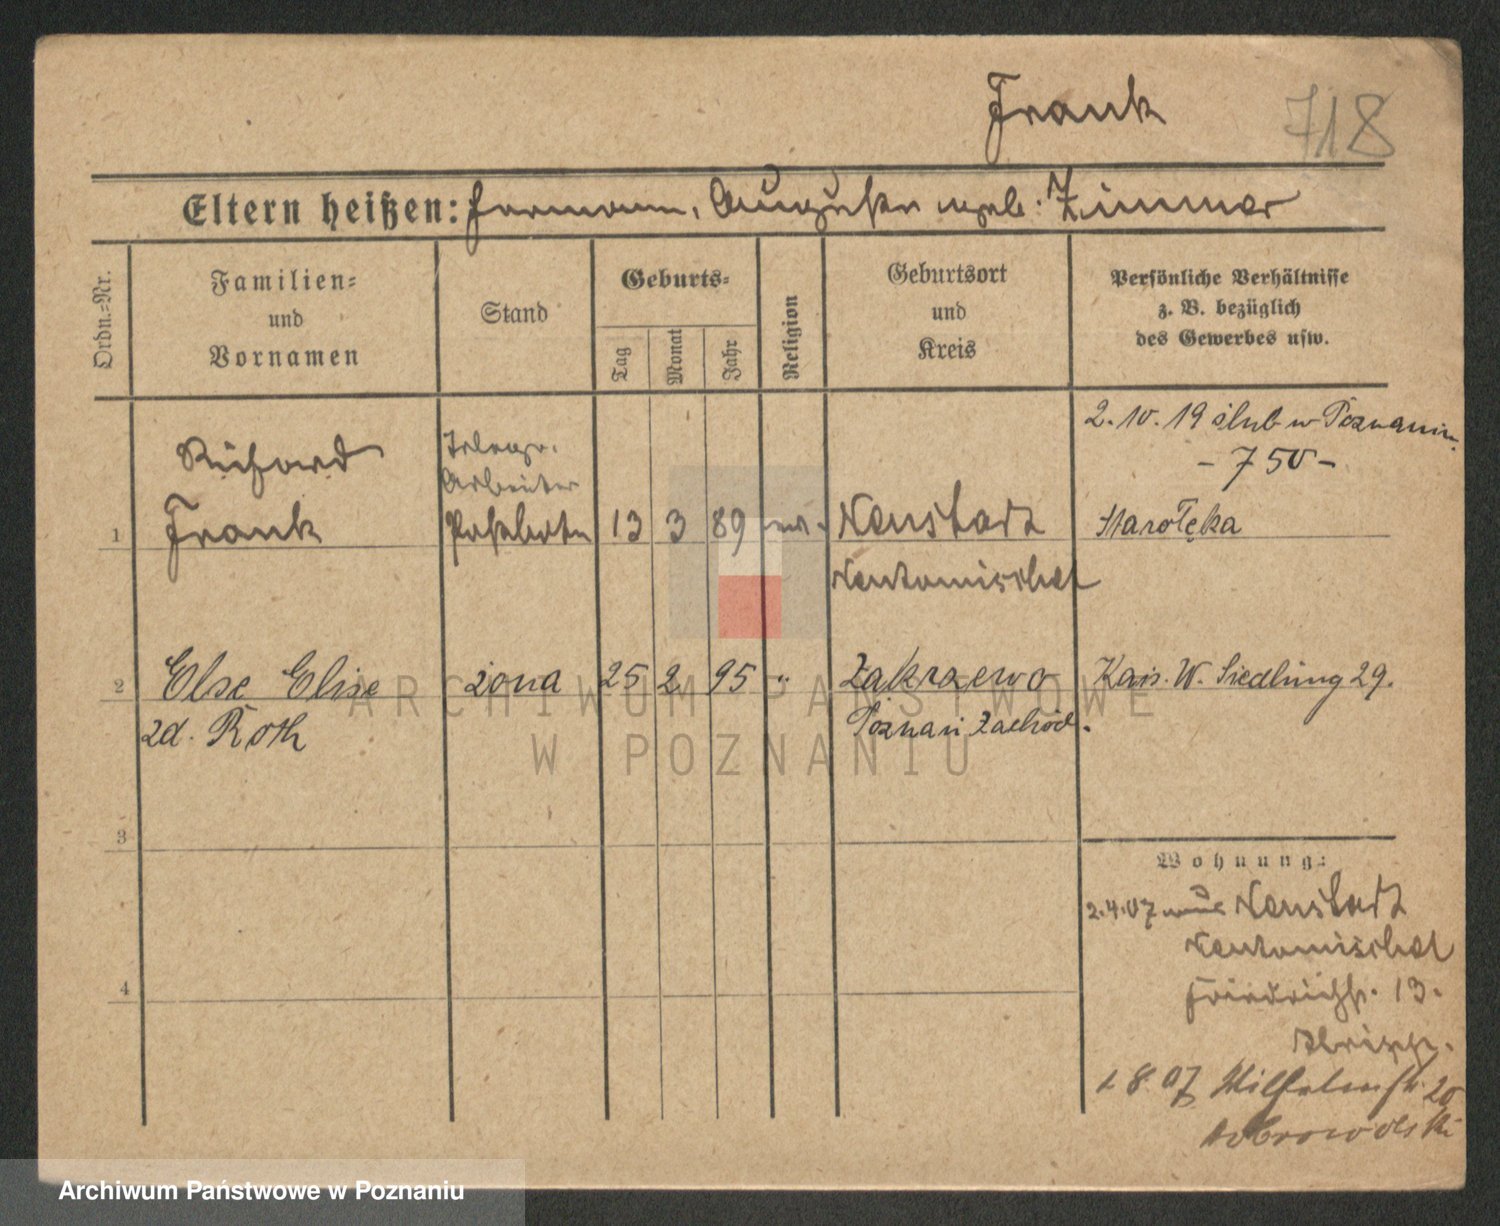 Frank
718
Eltern heißen: Hermann, Auguste geb. Zimmer
Ordn.=Nr.
Familien=
und
Vornamen
Stand
Geburts=
Tag
Monat
Jahr
Religion
Geburtsort
und
Kreis
Persönliche Verhältnisse
z. B. bezüglich
des Gewerbes usw.
2.10.19 ślub w Poznaniu
- 750 -
Richard
Telegr.
Arbeiter
1 Frank Postbote 13 3 89 ev. Neustadt Starołęka
Neutomischel
2 Else Elise żona 25 2 95 " Zakrzewo Kais. W. Siedlung 29.
zd. Roth Poznań Zachód.
3
Wohnung:
2.4.07 Neustadt
Neutomischel
4
Friedrichstr. 13.
1.8.07 Wilhelmstr. 20
Dobrowolski
ARCHIWUM PAŃSTWOWE
W POZNANIU
Archiwum Państwowe w Poznaniu